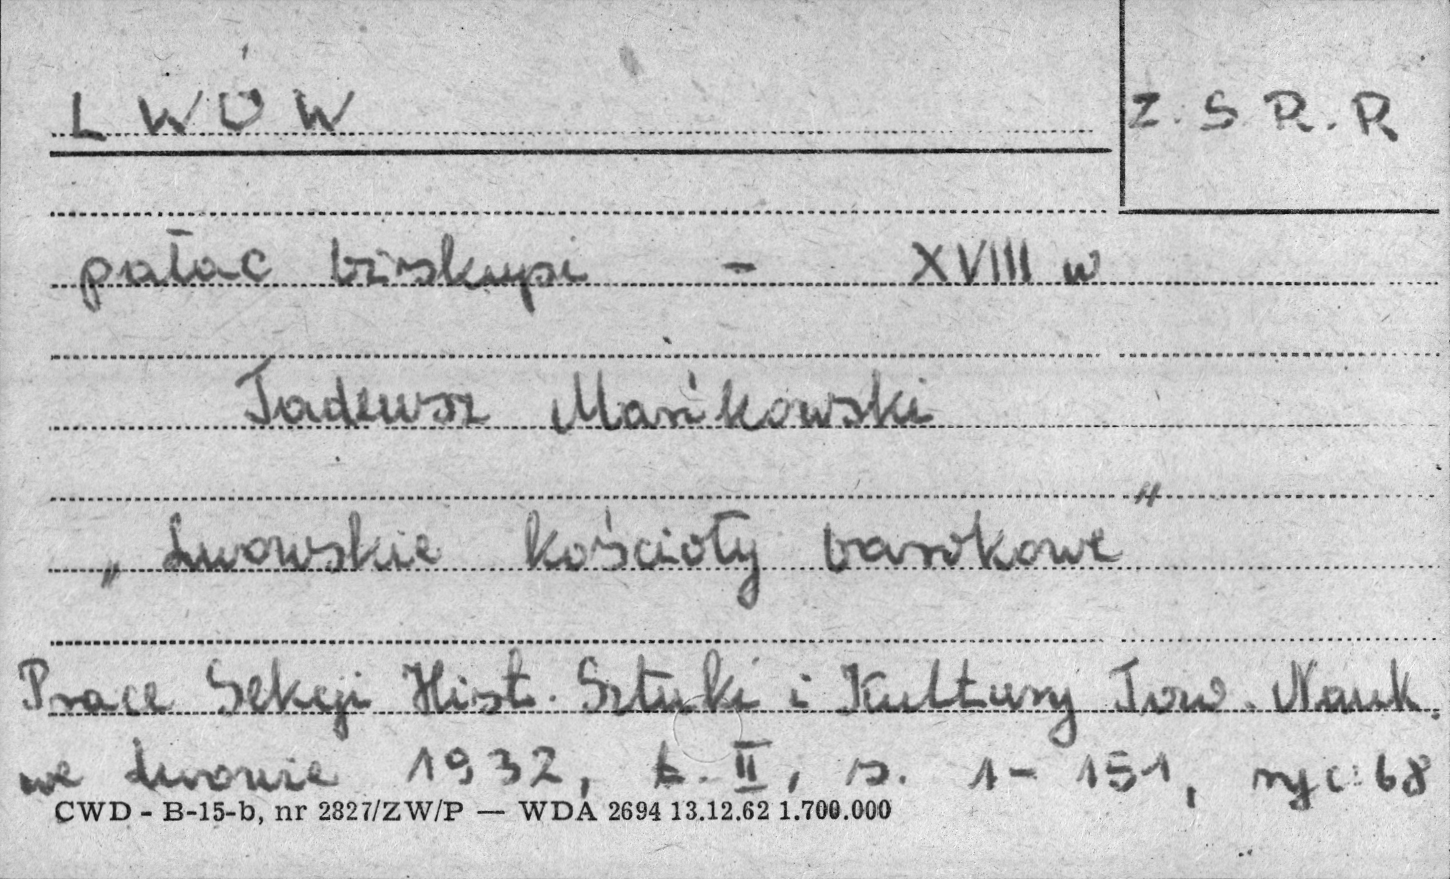 LWÓW
Z.S.R.R
pałac biskupi - XVIII w
Tadeusz Mańkowski
„Lwowskie kościoły barokowe"
Prace Sekcji Hist. Sztuki i Kultury Tow. Nauk.
we Lwowie 1932, t. II, s. 1-151, ryc. 68
CWD - B-15-b, nr 2827/ZW/P — WDA 2694 13.12.62 1.700.000